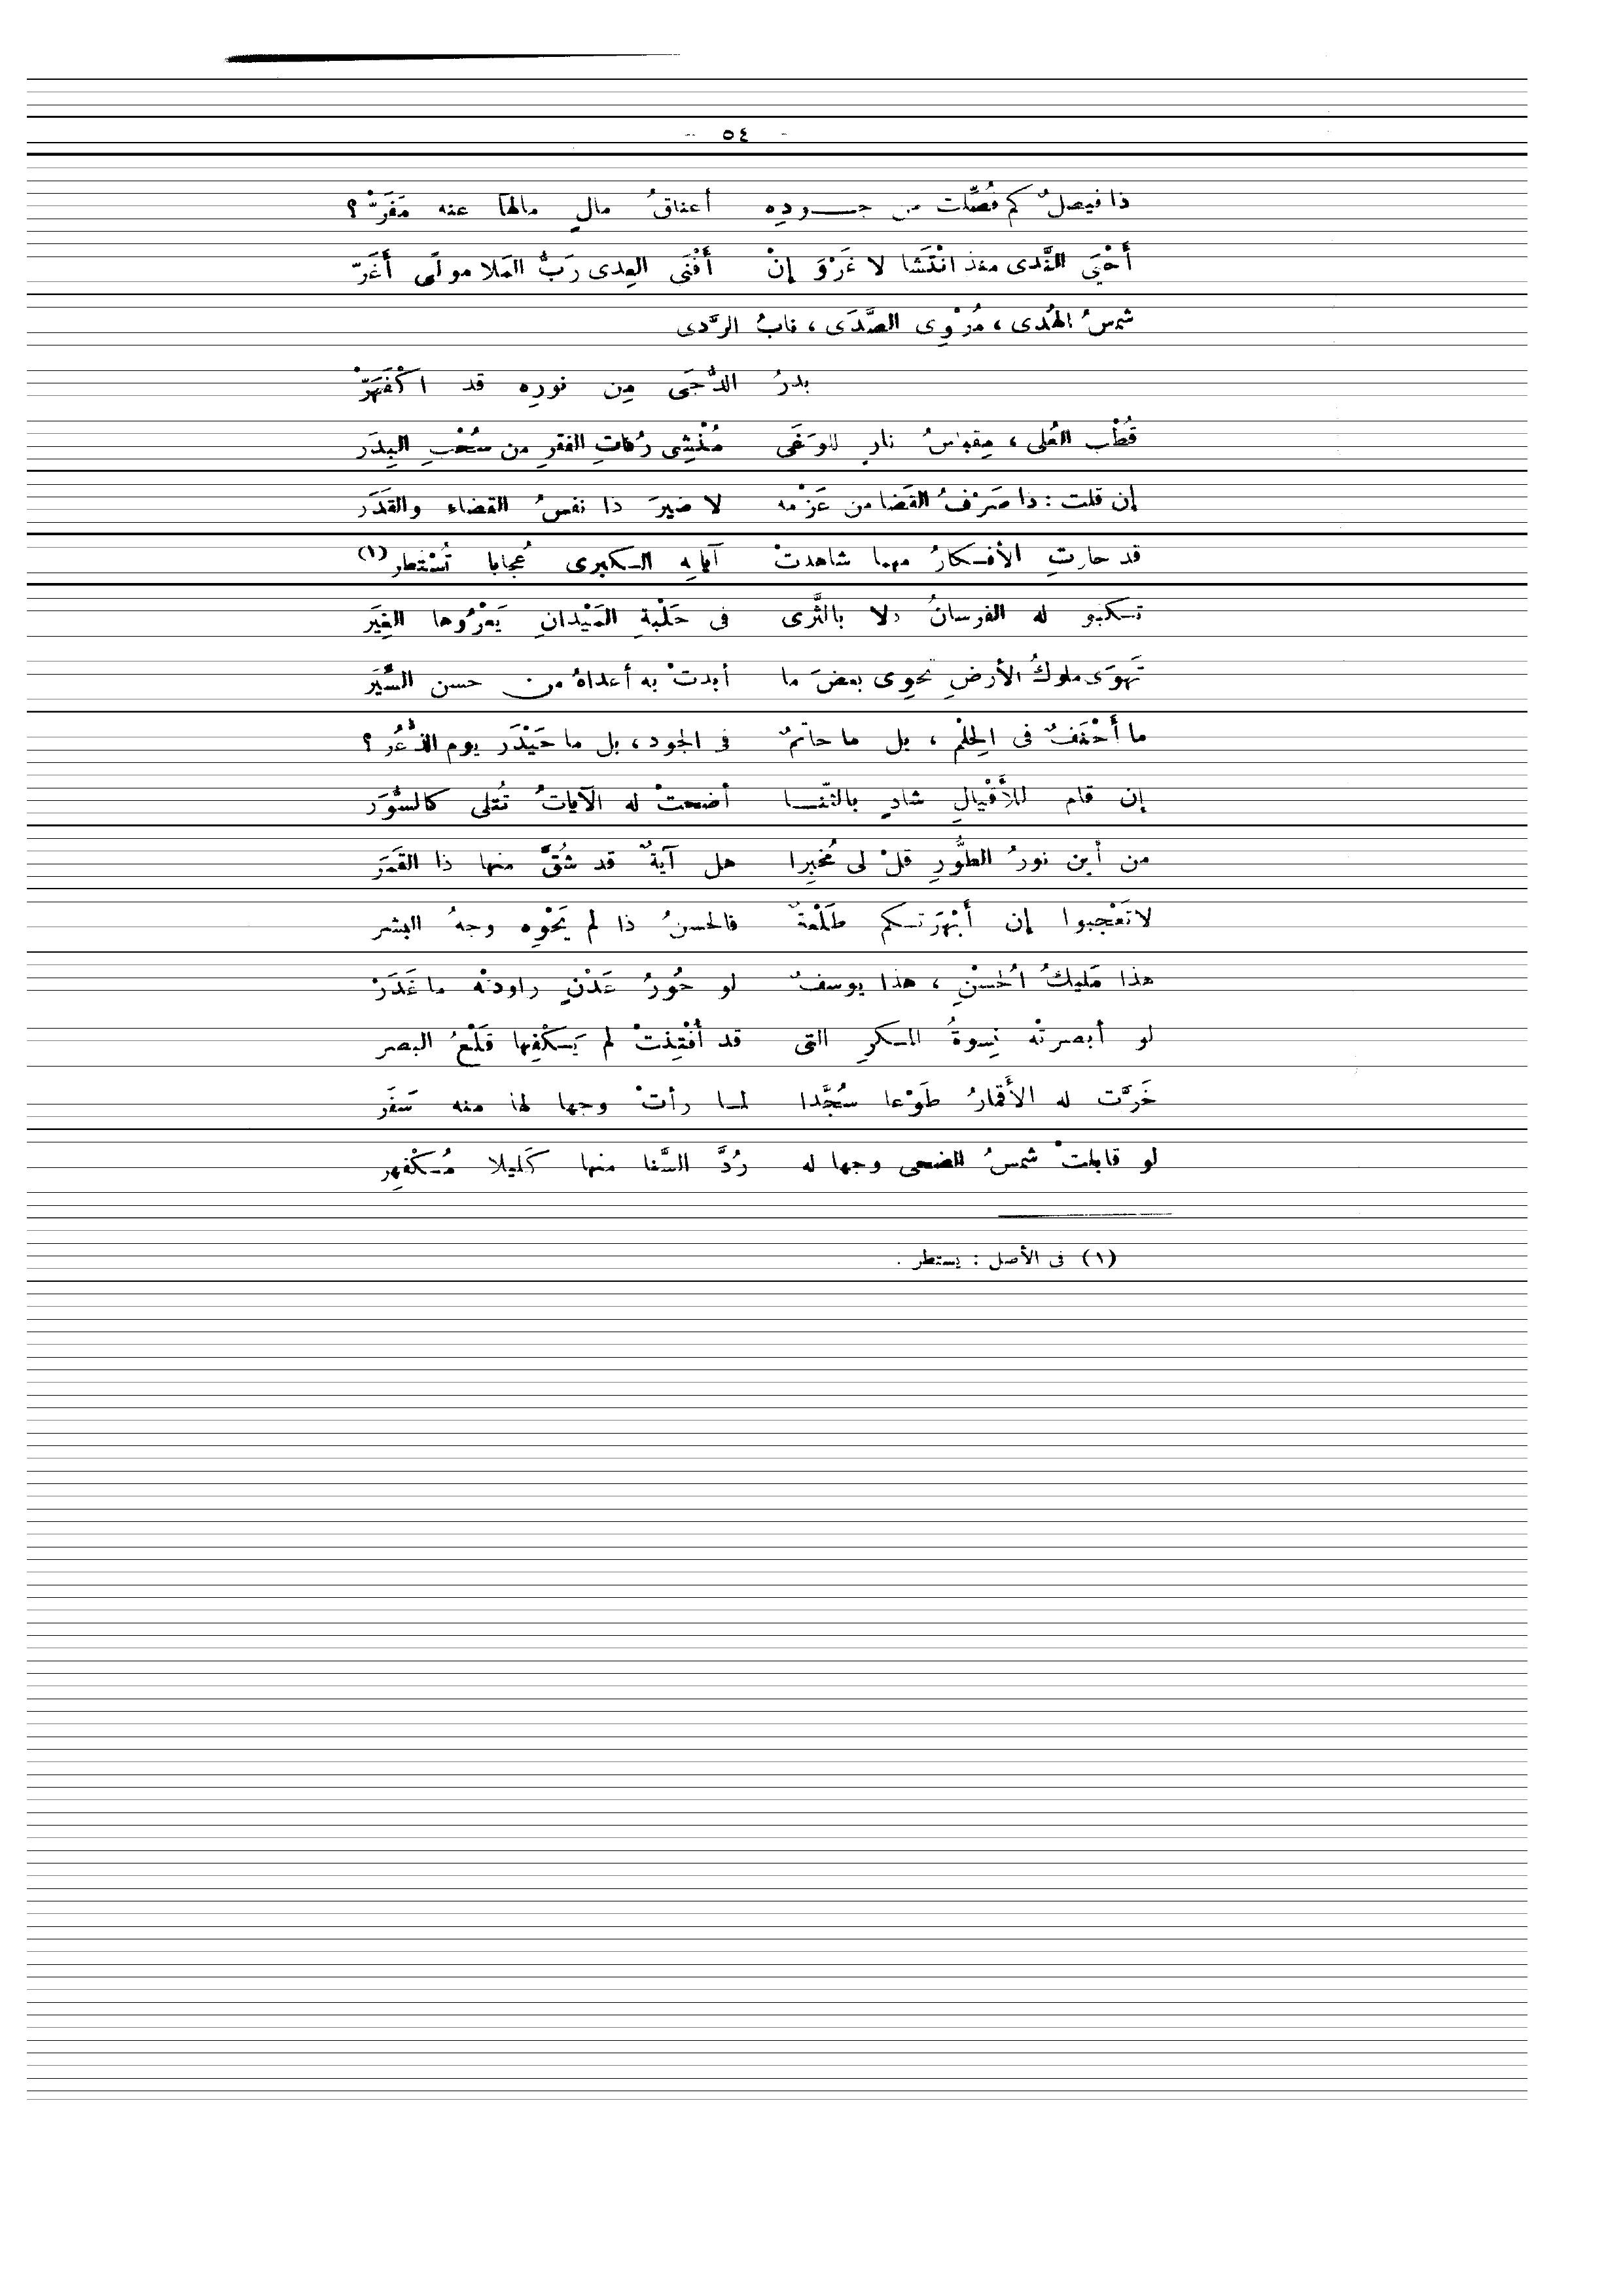 - ٥٤ -
ذا فيصلٌ كم فُصِّلت من جــوده أعناقُ مالٍ مالها عنه مَفَرّْ ؟
أَحْيَى النَّدى منذ انْتَشَا لا غَرْوَ إنْ أَفْنَى العِدى رَبُّ العَلا مولًى أَغَرّ
شمسُ الهُدى ، مُرْوِى الصَّدَى ، نابُ الرَّدى
بدرُ الدُّجَى مِن نورِه قد اكْفَهَرّْ
قُطْب العُلى ، مِقباسُ نارٍ للوَغَى مُنْشِى رُفاتِ الفقرِ من سُحْبِ البِدَر
إن قلت : ذا صَرْفُ القَضا من عَزْمه لا ضيرَ ذا نفسُ القضاء والقَدَر
قد حارتِ الأفكارُ مهما شاهدتْ آياتِه الكبرى عُجابا تُسْتطر (١)
تكبو له الفرسانُ ذلا بالثَّرى فى حَلْبةِ المَيْدانِ يَعْرُوها الغِيَر
تَهوَى ملوكُ الأرضِ تحوِى بعضَ ما أبدتْ به أعداهُ من حسن السِّيَر
ما أَحْنَفٌ فى الحِلْمِ ، بل ما حاتمٌ فى الجود ، بل ما حَيْدَر يوم الذُّعُر ؟
إن قام للأَقْيالِ شادٍ بالثنــا أضحتْ له الآياتُ تُتلى كالسُّوَر
من أين نورُ الطُّورِ قلْ لى مُخبِرا هل آيةٌ قد شُقَّ منها ذا القَمَر
لا تَعْجبوا إن أَبْهَرَتكم طَلْعةٌ فالحسنُ ذا لم يَحْوِه وجهُ البشر
هذا مَليكُ الحُسْنِ ، هذا يوسفٌ لو حُورُ عَدْنٍ راودتْه ما غَدَرْ
لو أبصرتْه نِسوةُ المكرِ التى قد أُفْتِذتْ لم يَكْفِها قَلْعُ البصر
خَرَّت له الأقمارُ طَوْعا سُجَّدا لمــا رأتْ وجها لها منه سَفَر
لو قابلتْ شمسُ الضحى وجها له رُدَّ السَّنا منها كَليلا مُكْفهِر
(١) فى الأصل : يستطر .